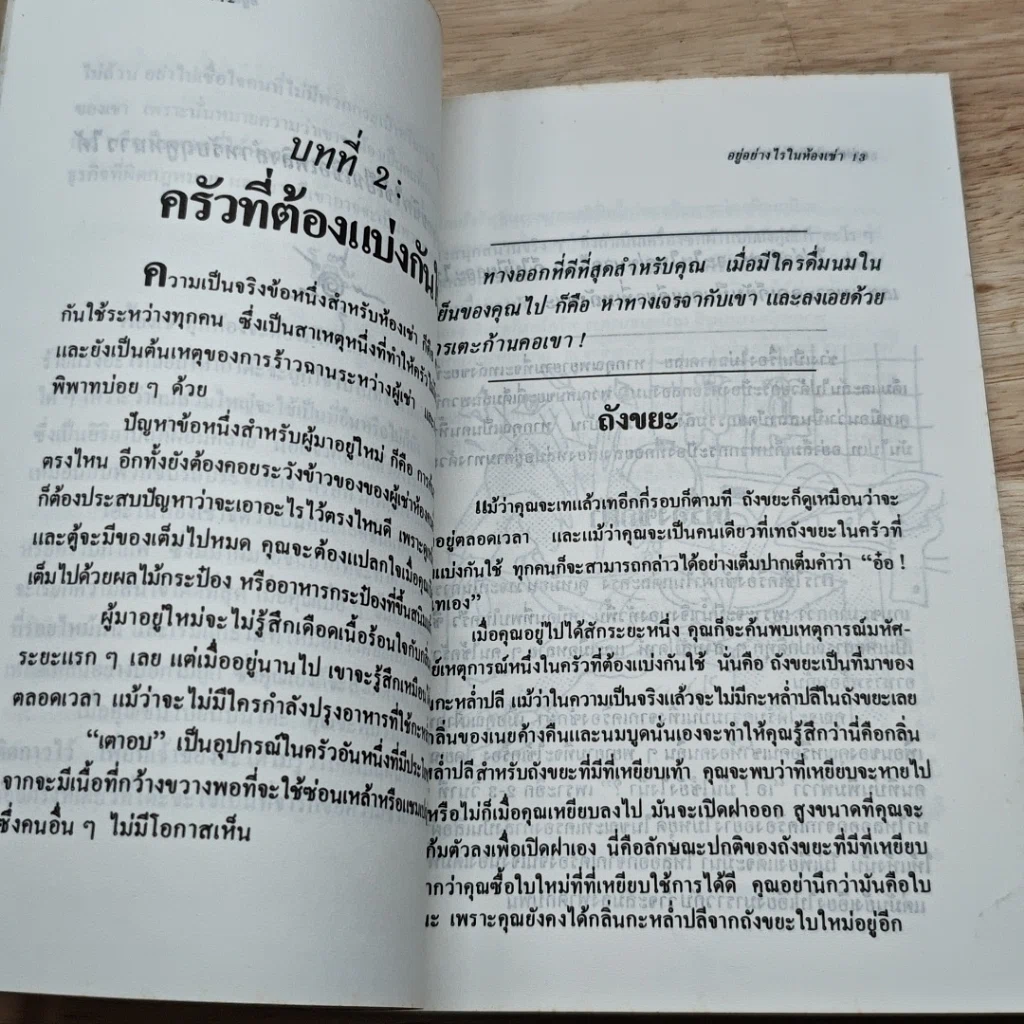 บทที่ 2 :
ครัวที่ต้องแบ่งกัน
ความเป็นจริงข้อหนึ่งสำหรับห้องเช่า ก็คือ
กันใช้ระหว่างทุกคน ซึ่งเป็นสาเหตุหนึ่งที่ทำให้ครัว
และยังเป็นต้นเหตุของการร้าวฉานระหว่างผู้เช่า
พิพาทบ่อย ๆ ด้วย
ปัญหาข้อหนึ่งสำหรับผู้มาอยู่ใหม่ ก็คือ การ
ตรงไหน อีกทั้งยังต้องคอยระวังข้าวของของผู้เช่าห้อง
ก็ต้องประสบปัญหาว่าจะเอาอะไรไว้ตรงไหนดี เพราะ
และตู้จะมีของเต็มไปหมด คุณจะต้องแปลกใจเมื่อคุณ
เต็มไปด้วยผลไม้กระป๋อง หรืออาหารกระป๋องที่ขึ้นสนิม
ผู้มาอยู่ใหม่จะไม่รู้สึกเดือดเนื้อร้อนใจกับ
ระยะแรก ๆ เลย แต่เมื่ออยู่นานไป เขาจะรู้สึกเหมือน
ตลอดเวลา แม้ว่าจะไม่มีใครกำลังปรุงอาหารที่ใช้กะหล่ำ
“เตาอบ” เป็นอุปกรณ์ในครัวอันหนึ่งที่มีประโย
จากจะมีเนื้อที่กว้างขวางพอที่จะใช้ซ่อนเหล้าหรือแชม
ซึ่งคนอื่น ๆ ไม่มีโอกาสเห็น
อยู่อย่างไรในห้องเช่า 13
ทางออกที่ดีที่สุดสำหรับคุณ เมื่อมีใครดื่มนมใน
เย็นของคุณไป ก็คือ หาทางเจรจากับเขา และลงเอยด้วย
การเตะก้านคอเขา !
ถังขยะ
แม้ว่าคุณจะเทแล้วเทอีกกี่รอบก็ตามที ถังขยะก็ดูเหมือนว่าจะ
อยู่ตลอดเวลา และแม้ว่าคุณจะเป็นคนเดียวที่เทถังขยะในครัวที่
แบ่งกันใช้ ทุกคนก็จะสามารถกล่าวได้อย่างเต็มปากเต็มคำว่า “อ๋อ !
เทเอง”
เมื่อคุณอยู่ไปได้สักระยะหนึ่ง คุณก็จะค้นพบเหตุการณ์มหัศ-
ย์เหตุการณ์หนึ่งในครัวที่ต้องแบ่งกันใช้ นั่นคือ ถังขยะเป็นที่มาของ
กะหล่ำปลี แม้ว่าในความเป็นจริงแล้วจะไม่มีกะหล่ำปลีในถังขยะเลย
กลิ่นของเนยค้างคืนและนมบูดนั่นเองจะทำให้คุณรู้สึกว่านี่คือกลิ่น
หล่ำปลี สำหรับถังขยะที่มีที่เหยียบเท้า คุณจะพบว่าที่เหยียบจะหายไป
หรือไม่ก็เมื่อคุณเหยียบลงไป มันจะเปิดฝาออก สูงขนาดที่คุณจะ
ก้มตัวลงเพื่อเปิดฝาเอง นี่คือลักษณะปกติของถังขยะที่มีที่เหยียบ
กว่าคุณซื้อใบใหม่ที่ที่เหยียบใช้การได้ดี คุณอย่านึกว่ามันคือใบ
นะ เพราะคุณยังคงได้กลิ่นกะหล่ำปลีจากถังขยะใบใหม่อยู่อีก